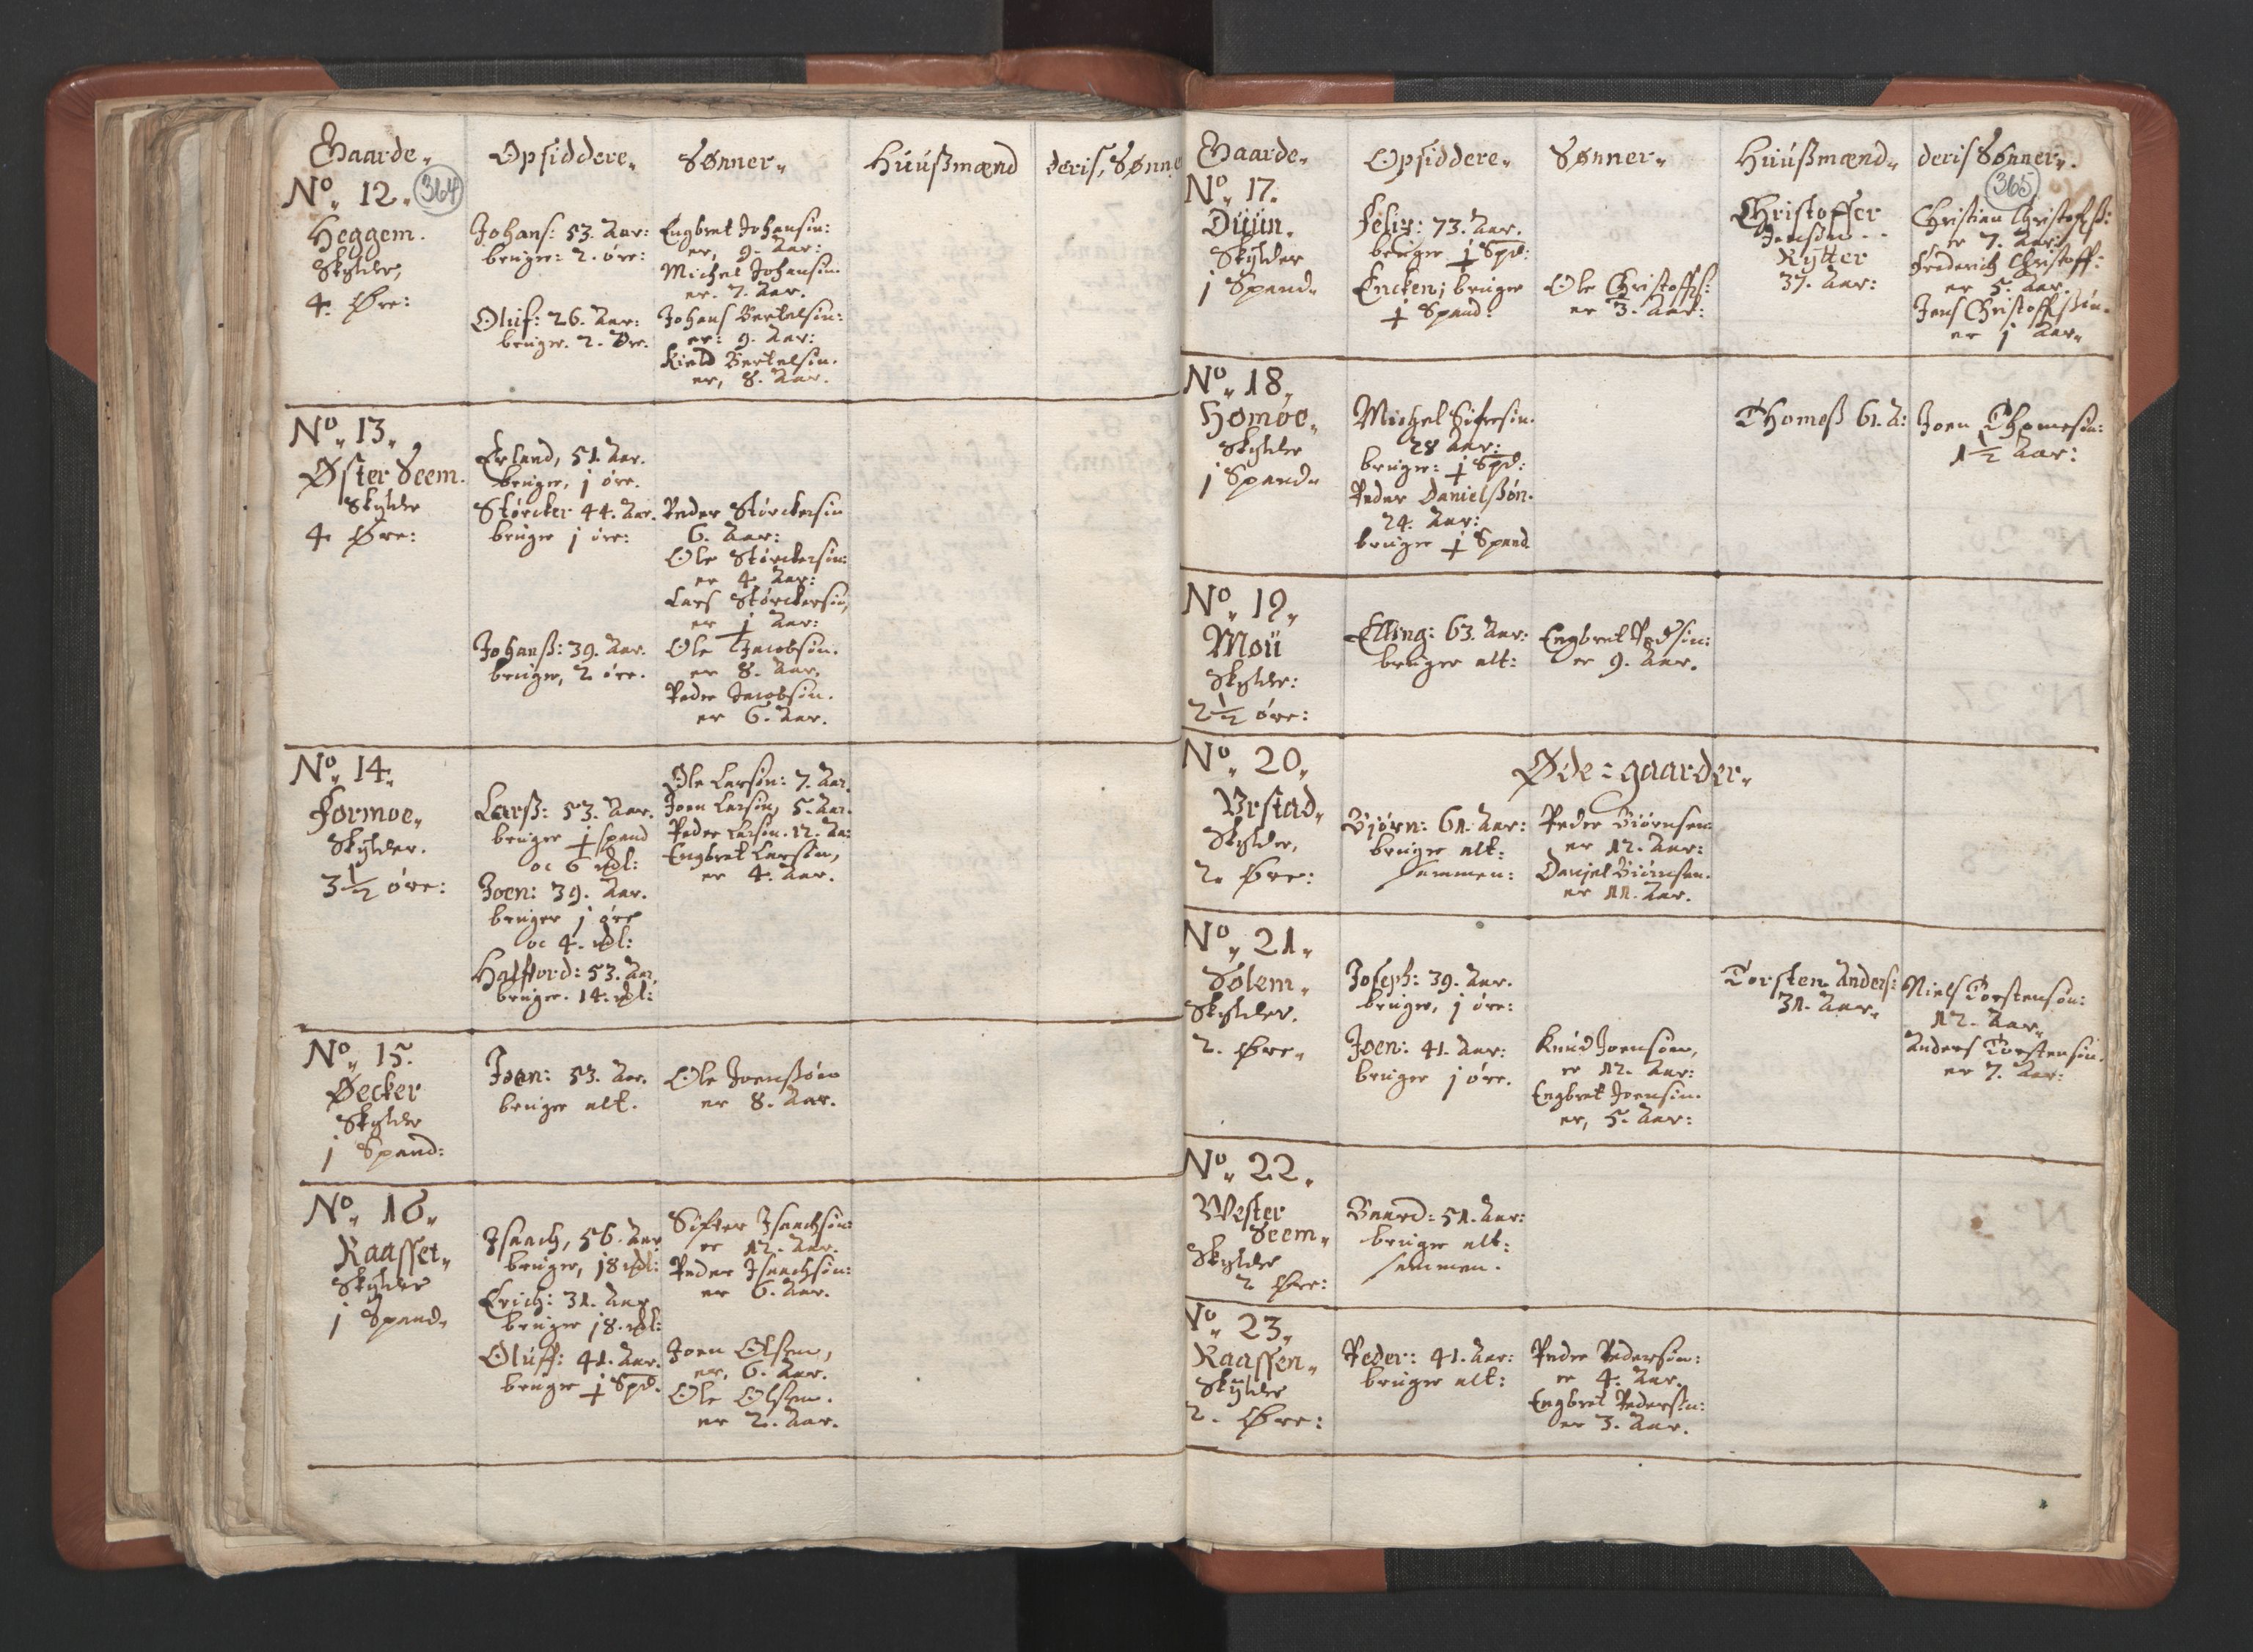 Gaarde. Opsiddere. Sønner. Huußmænd deris Sønne
No. 12. 364
Heggem.
Skylder,
4. Øre:
Johans: 53. Aar:
bruger: 2. øre:
Oluf: 26. Aar:
bruger. 2. Ør.
Engbret Johansøn:
er, 9. Aar:
Michel Johansøn.
er. 7. Aar.
Johans Bertelsøn:
er: 9. Aar:
Kield Bertelsøn.
er, 8. Aar.
No. 13.
Øster Seem.
Skylder
4. Øre:
Erland, 51. Aar.
bruger, j øre.
Størcker 44. Aar.
bruger j øre:
Johanß: 39. Aar.
bruger, 2 øre.
Peder Størckersøn
6. Aar:
Ole Størckersøn:
er 4. Aar:
Lars Størckersøn,
er j Aar:
Ole Jacobsøn.
er 8. Aar.
Peder Jacobsøn.
er 6. Aar.
No. 14.
Formoe.
Skylder.
3½ øre:
Larß: 53. Aar.
bruger ½ spand
oc 6 mkl:
Joen: 39. Aar.
bruger j øre
oc 4. mkl:
Halffvord: 53. Aar,
bruger. 14. mkl:
Ole Larsøn: 7. Aar.
Joen Larsøn, 5. Aar.
Peder Larsøn. 12. Aa:
Engbret Larsøn,
er 4. Aar.
No. 15.
Øecker
Skylder
j Spand:
Joen: 53. Aar.
bruger alt.
Ole Joenßøn
er 8. Aar.
No. 16.
Raasset.
Skylder
j Spand.
Isaach, 56. Aar
bruger, 18 mkl:
Erich: 31. Aar
bruger 18. mkl:
Oluff: 41. Aar.
bruger ½ Spd.
Sifver Isaachsøn:
er 12. Aar.
Peder Isaachsøn:
er 6. Aar.
Joen Olsen,
er, 6. Aar.
Ole Olsen.
er 2. Aar.
Gaarde. Opsiddere. Sønner. Huußmænd. deris Sønner.
No. 17. 365
Duun.
Skylder
j Spand.
Felix: 73. Aar.
bruger ½ Spd:
Encken; bruger
½ Spand:
Ole Christoffs:
er 3. Aar:
Christoffer
Jensøn
Rytter
37. Aar:
Christian Christoffß:
er 7. Aar:
Frederich Christoff:
er 5. Aar.
Jens Christoffßøn.
er j Aar.
No. 18.
Homoe.
Skylder
j Spand.
Michel Sifversøn.
28 Aar:
bruger: ½ Spd:
Peder Danielßøn.
24. Aar:
bruger ½ Spand
Thomeß 61. A:
Joen Thomesøn:
1½ Aar:
No. 19.
Moü
Skylder:
2½ øre:
Elling: 63. Aar:
bruger alt:
Engbret Pedsøn:
er 9. Aar.
No. 20. Øde=gaarder.
Urstad.
Skylder,
2. Øre:
Bjørn: 61. Aar:
bruger alt:
sammen:
Peder Biørnsen:
er 12. Aar:
Daniel Biørnsen.
er 11. Aar.
No. 21.
Solem.
Skylder.
2. Øre.
Joseph: 39. Aar.
bruger, j øre:
Joen: 41. Aar:
bruger j øre.
Knud Joensøn,
er 12. Aar:
Engbret Joensøn.
er, 5. Aar:
Torsten Anders:
31. Aar.
Niels Torstensøn:
12. Aar.
Anders Torstensøn.
er 7. Aar:
No. 22.
Wester
Seem.
Skylder
2 Øre:
Baard: 51. Aar:
bruger alt:
sammen.
No. 23.
Raassen.
Skylder
2. Øre:
Peder: 41. Aar:
bruger alt:
Peder Pedersøn:
er 4. Aar.
Engbret Pedersøn:
er 3. Aar.